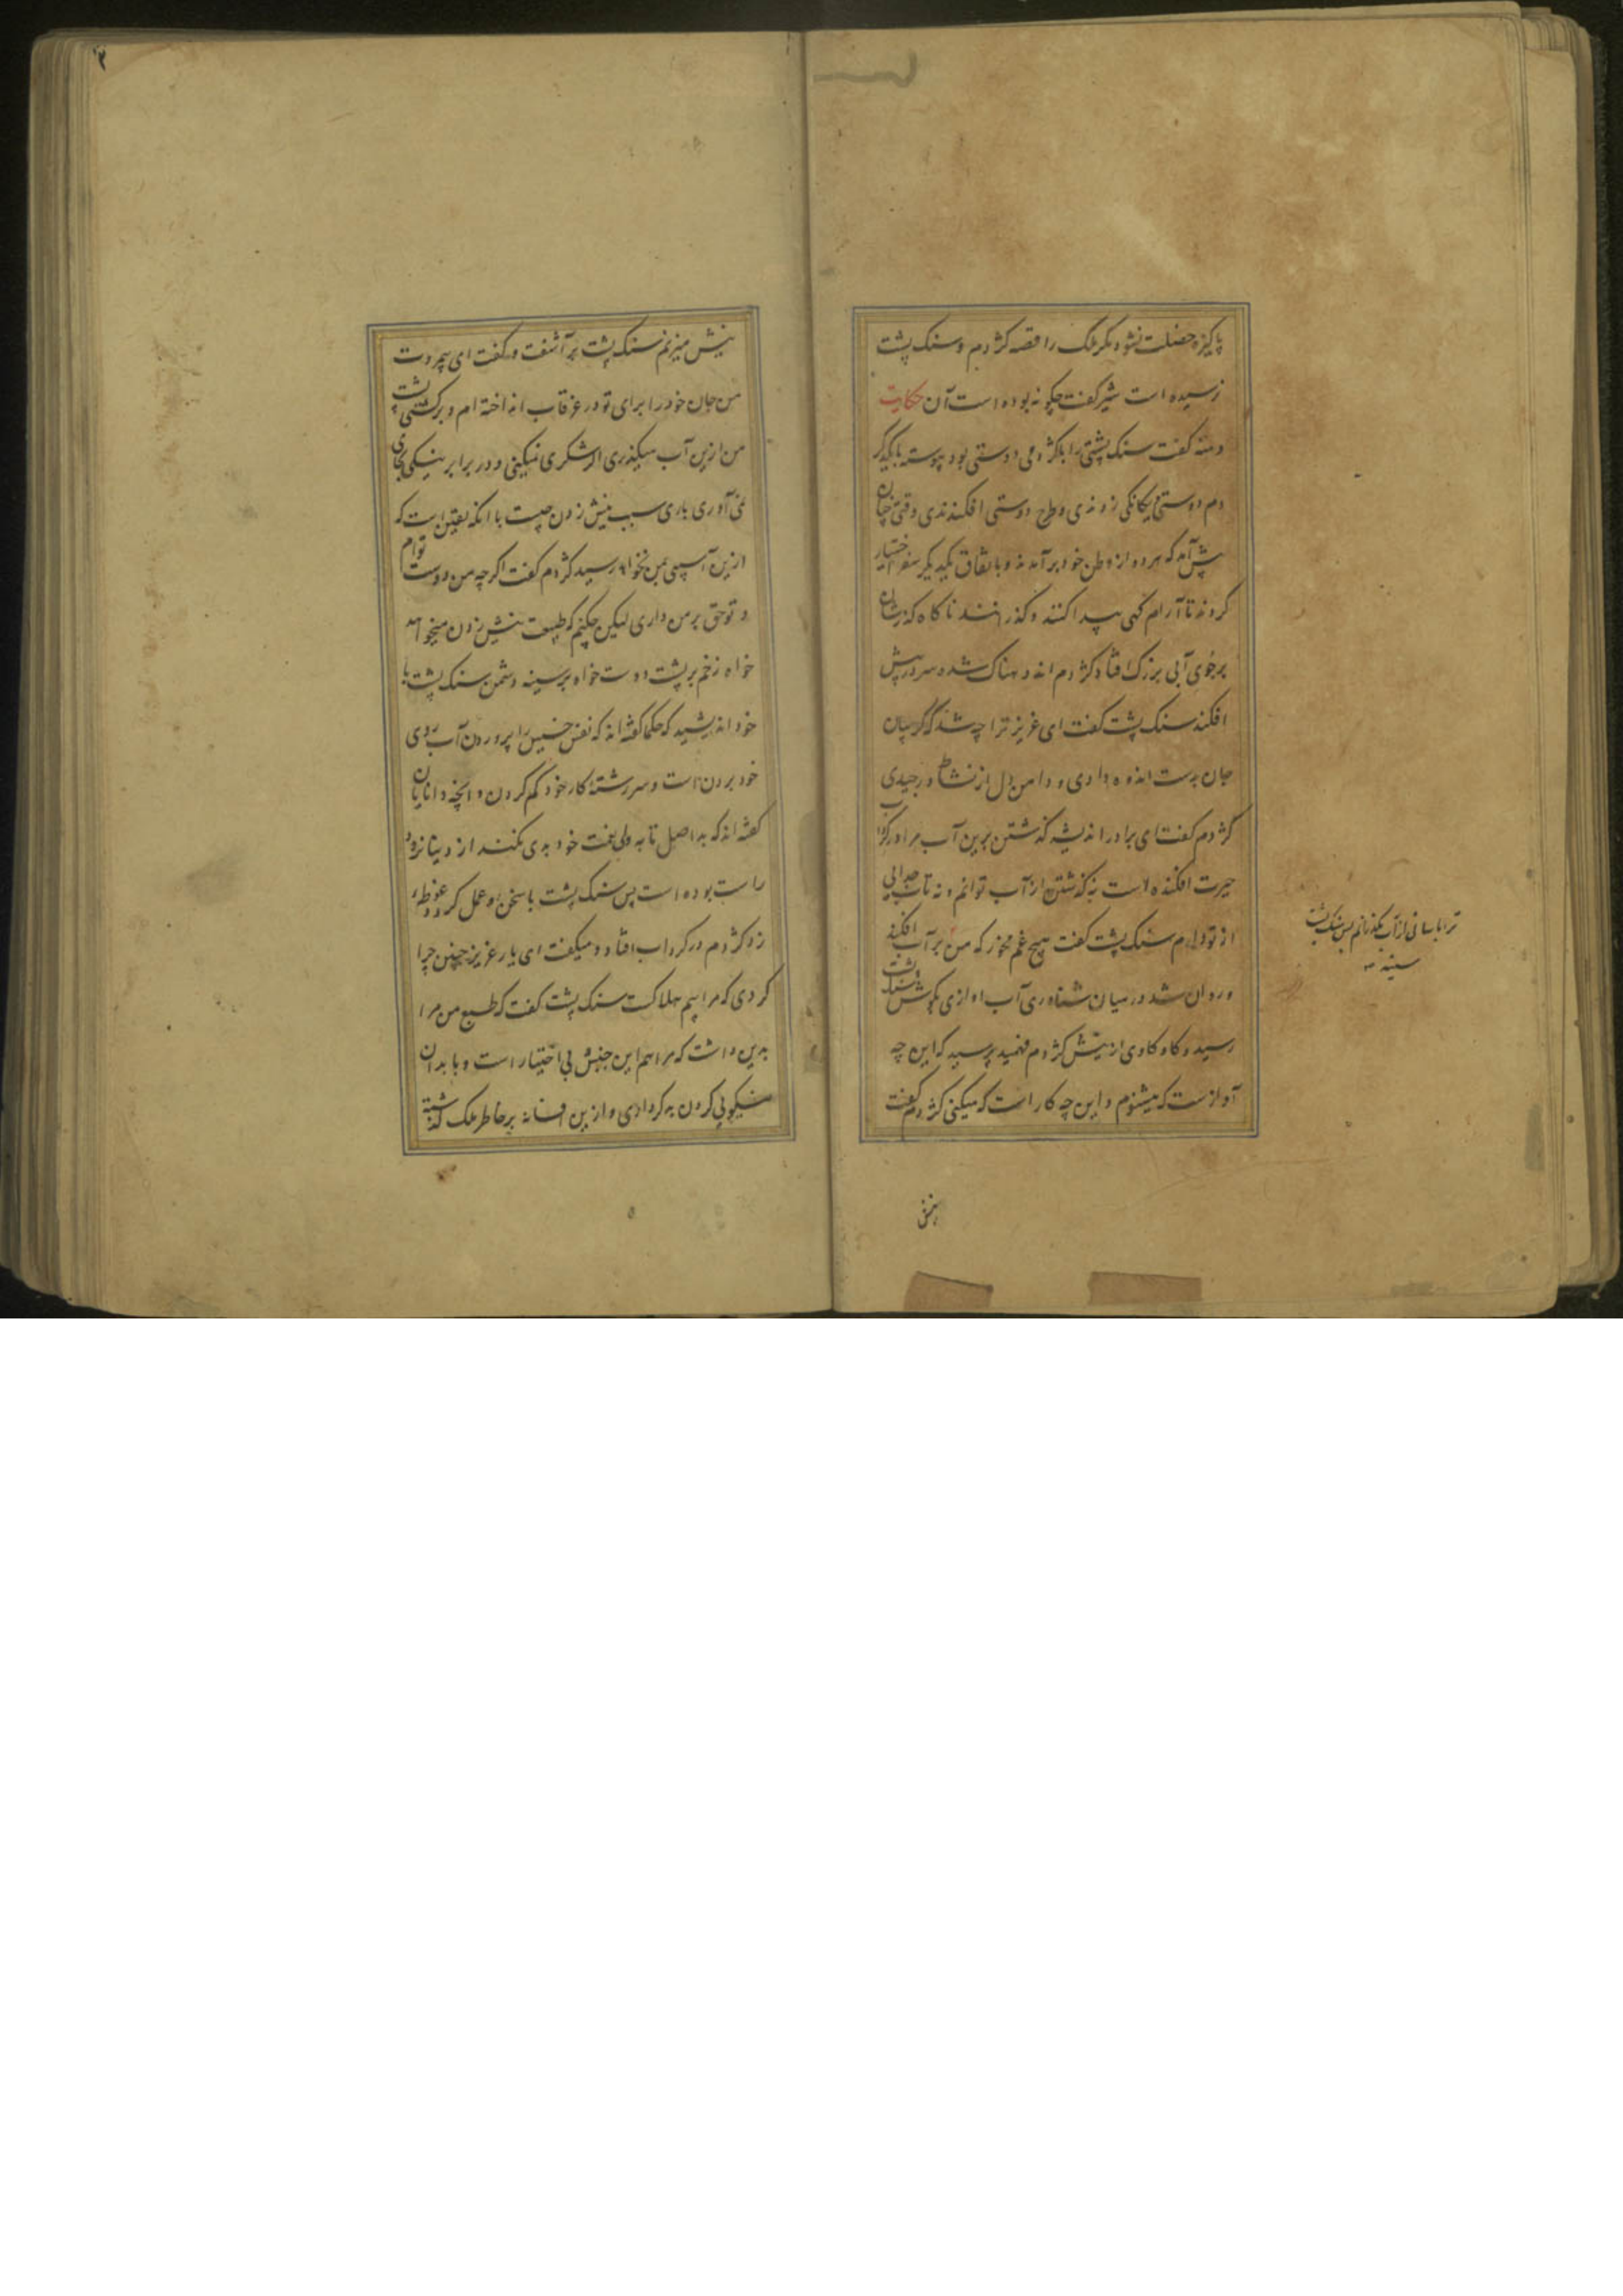 پاکیزه خصلت نشود مکر ملک را قصه کژدم و سنک پشت
نرسیده است شیر کفت چکونه بوده است آن حکایت
دمنه کفت سنک پشتی را با کژدمی دوستی بود پیوسته با یکدیگر
دم دوستی و یکانکی زدندی و طرح دوستی افکندندی وقتی چنان
پیش آمد که هر دو از وطن خود برآمدند و باتفاق یکدیکر سفر اختیار
کردند تا آرام کهی پیدا کنند و کذرانند ناکاه کذرشان
بر جوی آبی بزرک افتاد کژدم اندوهناک شده سر در پیش
افکند سنک پشت کفت ای عزیز ترا چه شد که کریبان
جان بدست اندوه دادی و دامن دل از نشاط درچیدی
کژدم کفت ای برادر اندیشه کذشتن برین آب مرا در کرداب
حیرت افکنده است نه کذشتن از آب توانم و نه تاب جدایی
از تو دارم سنک پشت کفت هیچ غم مخور که من بر آب افکند
و روان شد در میان شناوری آب اوازی بکوش سنک پشت
رسید و کاوکاوی از نیش کژدم فهمید پرسید که این چه
آوازست که میشنوم و این چه کار است که میکنی کژدم کفت
ترا باسانی از آب بکذرانم پس سنک پشت
سینه
نیش
نیش میزنم سنک پشت برآشفت و کفت ای بیمروت
من جان خود را برای تو در غرقاب انداخته ام و بر کشتی پشت
من ازین آب میکذری اکر شکری نمیکنی و در برابر نیکی بجای
نمی آوری باری سبب نیش زدن چیست با انکه یقین است که
ازین آسیبی بمن نخواهد رسید کژدم کفت اکرچه من دوست توام
و تو حق بر من داری لیکن چکنم که طبیعت نیش زدن میخواهد
خواه زخم بر پشت دوست خواه بر سینه دشمن سنک پشت با
خود اندیشید که حکما کفته اند که نفس خسیس را پروردن آب روی
خود بردن است و سررشته کار خود کم کردن و انچه دانایان
کفته اند که بد اصل تا به ولی نعمت خود بدی نکند از دنیا نرود
راست بوده است پس سنک پشت با سخن او عمل کرد و غوطه
زد کژدم در کرداب افتاد و میکفت ای یار عزیز چنین چرا
کردی که مرا بیم هلاکت سنک پشت کفت که طبع من مرا
بدین داشت که مرا هم این جنبش بی اختیار است و با بدان
نیکویی کردن بد کرداری و ازین افسانه بر خاطر ملک کذشته
۲